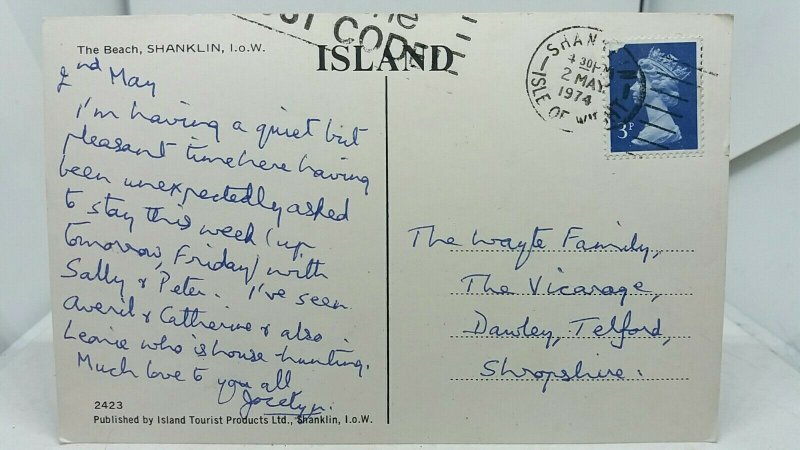 The Beach, SHANKLIN, I.o.W.
ISLAND
2nd May
I'm having a quiet but
pleasant time here having
been unexpectedly asked
to stay this week (up
tomorrow, Friday) with
Sally & Peter. I've seen
Averil & Catherine & also
Leonie who is house-hunting.
Much love to you all
Jocelyn.
2423
Published by Island Tourist Products Ltd., Shanklin, I.o.W.
POST CODE
SHAN
4 30PM
2 MAY
1974
ISLE OF WIGHT
3P
The Wayte Family,
The Vicarage,
Dawley, Telford,
Shropshire.